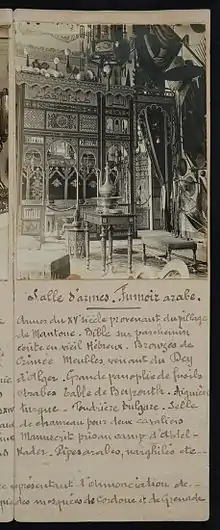 Salle d'armes. Fumoir arabe.
Armes du XVe siècle provenant du pillage
de Mantoue. Bible sur parchemin
écrite en vieil Hébreux. Bronzes de
Crimée Meubles venant du Dey
d'Alger. Grande panoplie de fusils
Arabes Table de Beyrouth. Aiguière
turque. Poudrière bulgare. Selle
de chameau pour deux cavaliers
Manuscrit pris au camp d'Abd-el-
Kader. Pipes arabes, narghilés etc
représentant l'Annonciation de
des mosquées de Cordoue et de Grenade